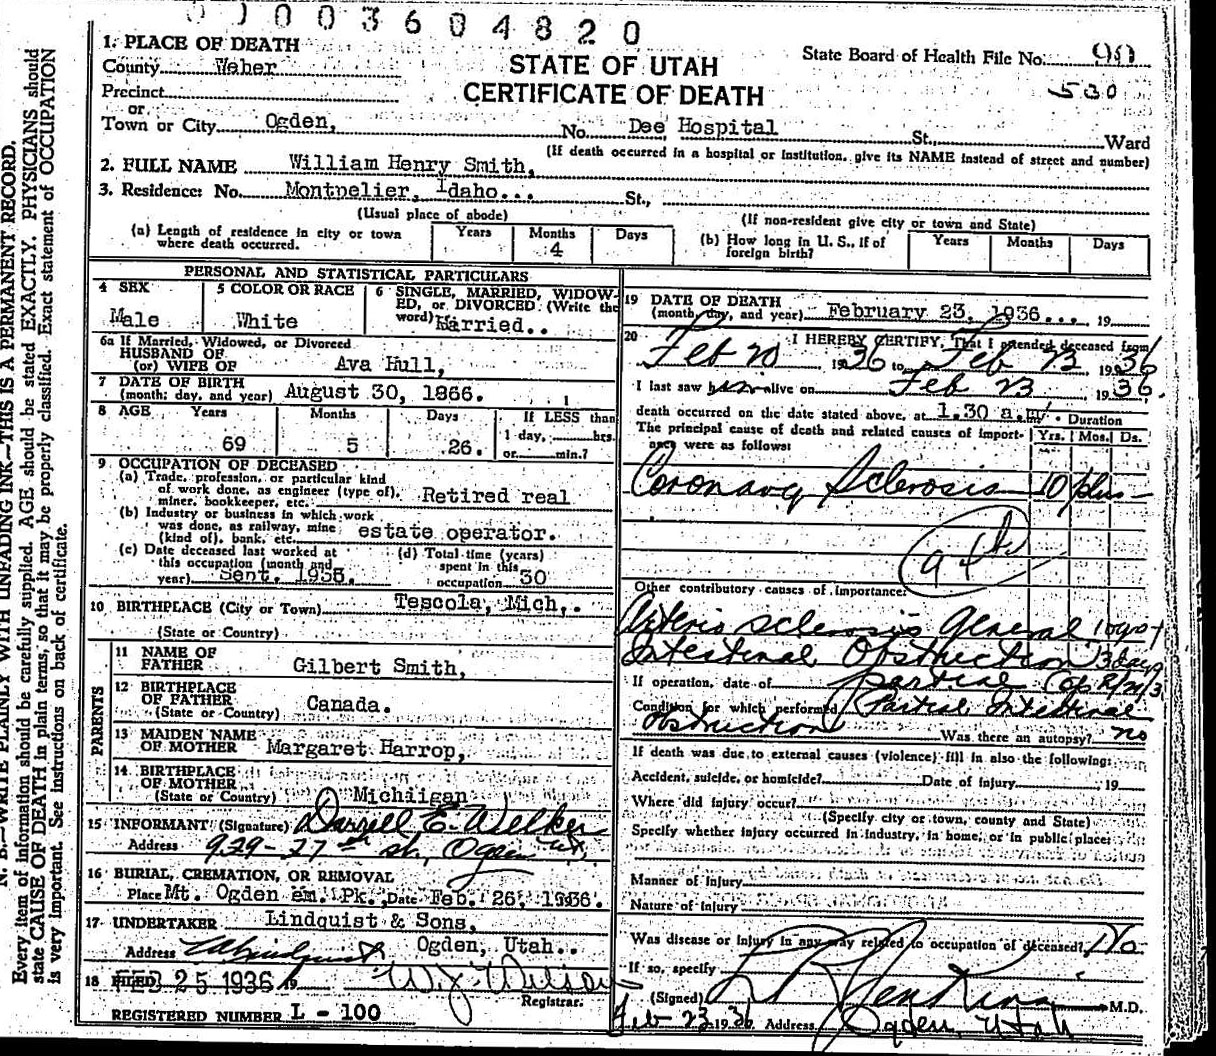 003604820
1. PLACE OF DEATH
County Weber
STATE OF UTAH
State Board of Health File No. 90
Precinct
CERTIFICATE OF DEATH
530
or
Town or City Ogden, No. Dee Hospital St., Ward
(If death occurred in a hospital or institution, give its NAME instead of street and number)
2. FULL NAME William Henry Smith,
3. Residence: No. Montpelier, Idaho... St.,
(Usual place of abode)
(If non-resident give city or town and State)
(a) Length of residence in city or town where death occurred. Years Months 4 Days
(b) How long in U. S., if of foreign birth? Years Months Days
PERSONAL AND STATISTICAL PARTICULARS
4 SEX Male
5 COLOR OR RACE White
6 SINGLE, MARRIED, WIDOWED, or DIVORCED (Write the word) Married..
6a If Married, Widowed, or Divorced
HUSBAND OF
(or) WIFE OF Ava Hull,
7 DATE OF BIRTH
(month, day, and year) August 30, 1866.
8 AGE Years 69 Months 5 Days 26. If LESS than 1 day, hrs. or min.?
9 OCCUPATION OF DECEASED
(a) Trade, profession, or particular kind of work done, as engineer (type of), miner, bookkeeper, etc. Retired real
(b) Industry or business in which work was done, as railway, mine (kind of), bank, etc. estate operator.
(c) Date deceased last worked at this occupation (month and year) Sept. 1935.
(d) Total time (years) spent in this occupation 30
10 BIRTHPLACE (City or Town) Tescola, Mich,.
(State or Country)
PARENTS
11 NAME OF FATHER Gilbert Smith,
12 BIRTHPLACE OF FATHER
(State or Country) Canada.
13 MAIDEN NAME OF MOTHER Margaret Harrop,
14 BIRTHPLACE OF MOTHER
(State or Country) Michiigan
15 INFORMANT (Signature) Darrell E. Welker
Address 929-27th st., Ogden Ut.
16 BURIAL, CREMATION, OR REMOVAL
Place Mt. Ogden em. Pk. Date Feb. 26, 1936.
17 UNDERTAKER Lindquist & Sons,
Address Ogden, Utah..
18 FILED FEB 25 1936 19 W. J. Wilson
Registrar.
REGISTERED NUMBER L - 100
19 DATE OF DEATH
(month, day, and year) February 23, 1936... , 19
20 I HEREBY CERTIFY, That I attended deceased from
Feb 20 1936 to Feb 23 1936
I last saw him alive on Feb 23, 1936.
death occurred on the date stated above, at 1.30 a.m. Duration
The principal cause of death and related causes of importance were as follows: Yrs. Mos. Ds.
Coronary Sclerosis 10 plus
Other contributory causes of importance:
Arterio sclerosis General 10 yr
Intestinal Obstruction 3 days
partial
If operation, date of
Condition for which performed Partial Intestinal
obstruction Was there an autopsy? no
If death was due to external causes (violence) fill in also the following:
Accident, suicide, or homicide? Date of injury , 19
Where did injury occur?
(Specify city or town, county and State)
Specify whether injury occurred in industry, in home, or in public place:
Manner of Injury
Nature of Injury
Was disease or injury in any way related to occupation of deceased? No.
If so, specify
(Signed) Jenkins M.D.
Feb 23 1936 Address Ogden, Utah
N. B.—WRITE PLAINLY WITH UNFADING INK—THIS IS A PERMANENT RECORD.
Every item of information should be carefully supplied. AGE should be stated EXACTLY. PHYSICIANS should
state CAUSE OF DEATH in plain terms, so that it may be properly classified. Exact statement of OCCUPATION
is very important. See instructions on back of certificate.